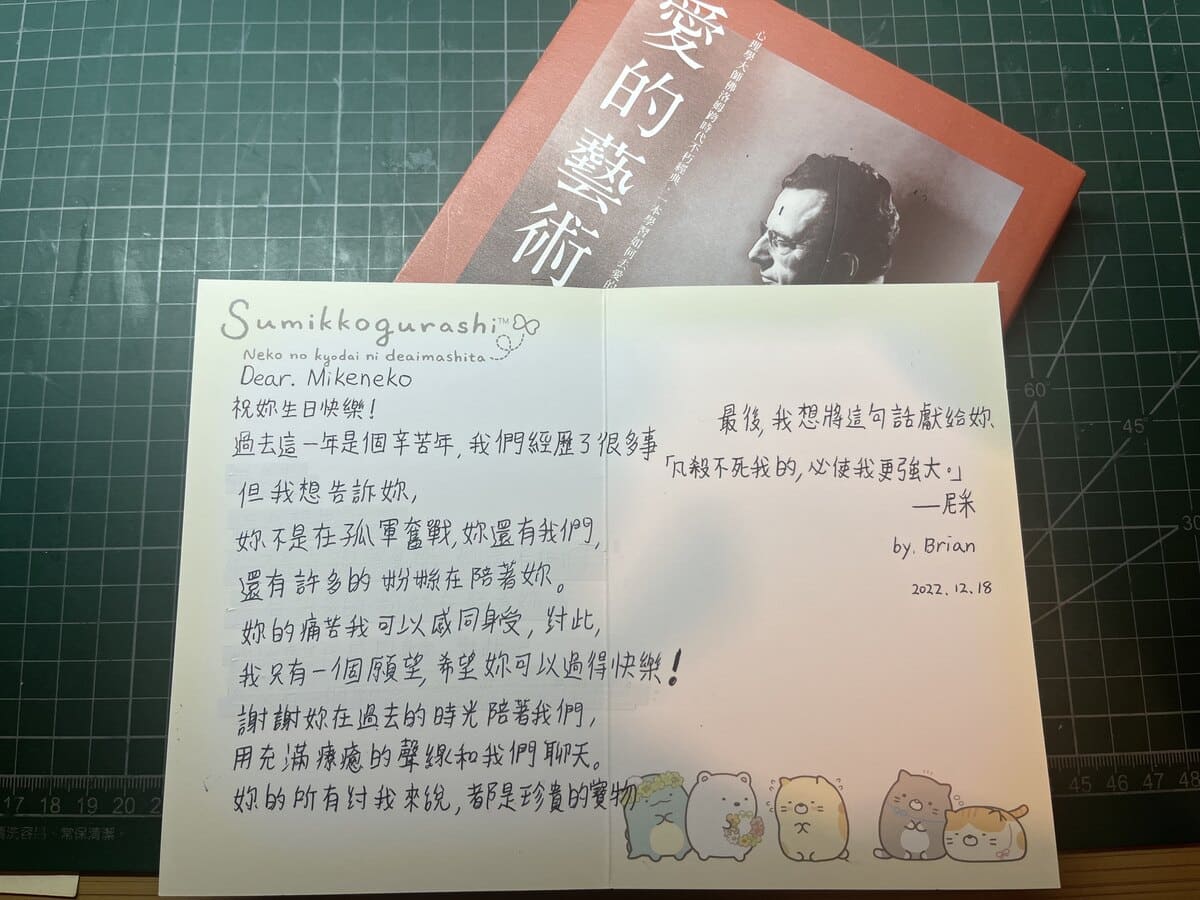 愛的藝術
心理學大師佛洛姆跨時代不朽經典，一本學習如何去愛的
Sumikkogurashi™
Neko no kyodai ni deaimashita
Dear. Mikeneko
祝妳生日快樂!
過去這一年是個辛苦年,我們經歷了很多事
但我想告訴妳,
妳不是在孤軍奮戰,妳還有我們,
還有許多的粉絲在陪著妳。
妳的痛苦我可以感同身受,對此,
我只有一個願望,希望妳可以過得快樂!
謝謝妳在過去的時光陪著我們,
用充滿療癒的聲線和我們聊天。
妳的所有對我來說,都是珍貴的寶物
最後,我想將這句話獻給妳
「凡殺不死我的,必使我更強大。」
—尼采
by. Brian
2022.12.18
60°
45°
30
17 18 19 20
45 46 47 48
清洗容易、常保清潔。